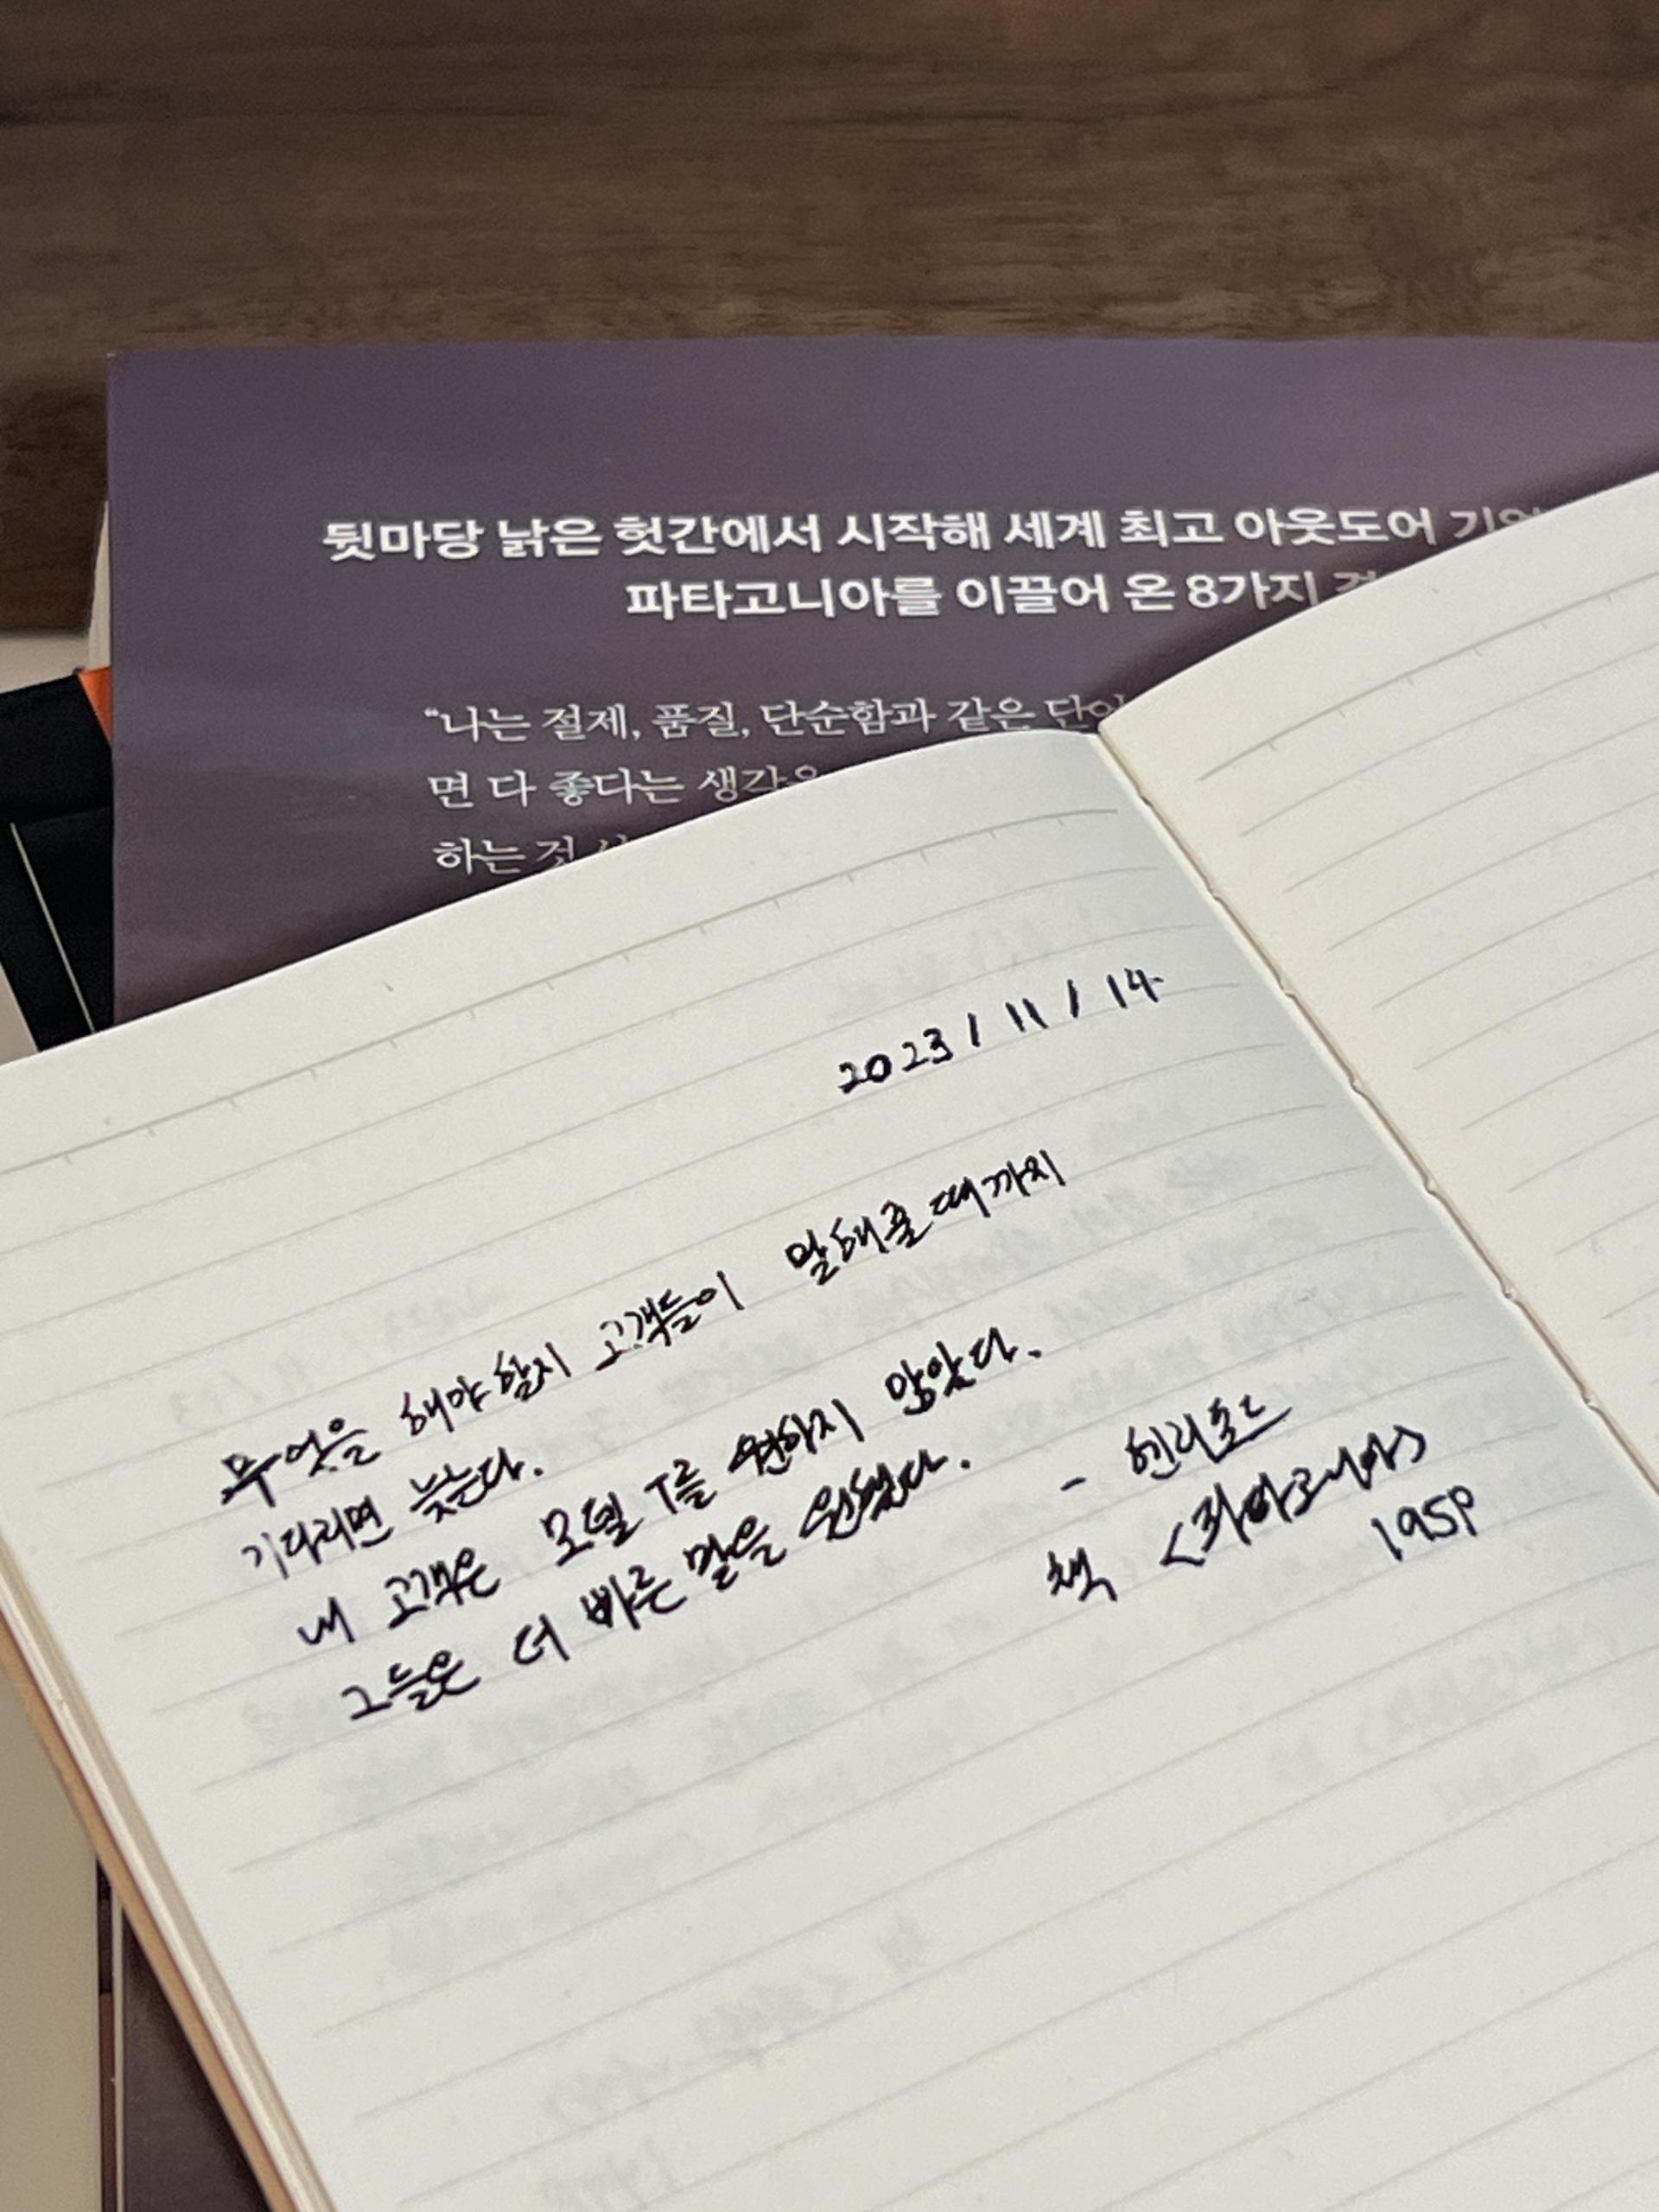 뒷마당 낡은 헛간에서 시작해 세계 최고 아웃도어
파타고니아를 이끌어 온 8가지
“나는 절제, 품질, 단순함과 같은
면 다 좋다는
하는 것
2023 / 11 / 14.
무엇을 해야 할지 고객들이 말해줄 때까지
기다리면 늦는다.
내 고객은 모델 T를 원하지 않았다.
그들은 더 빠른 말을 원했다.
- 헨리포드
책 <파타고니아>
195P